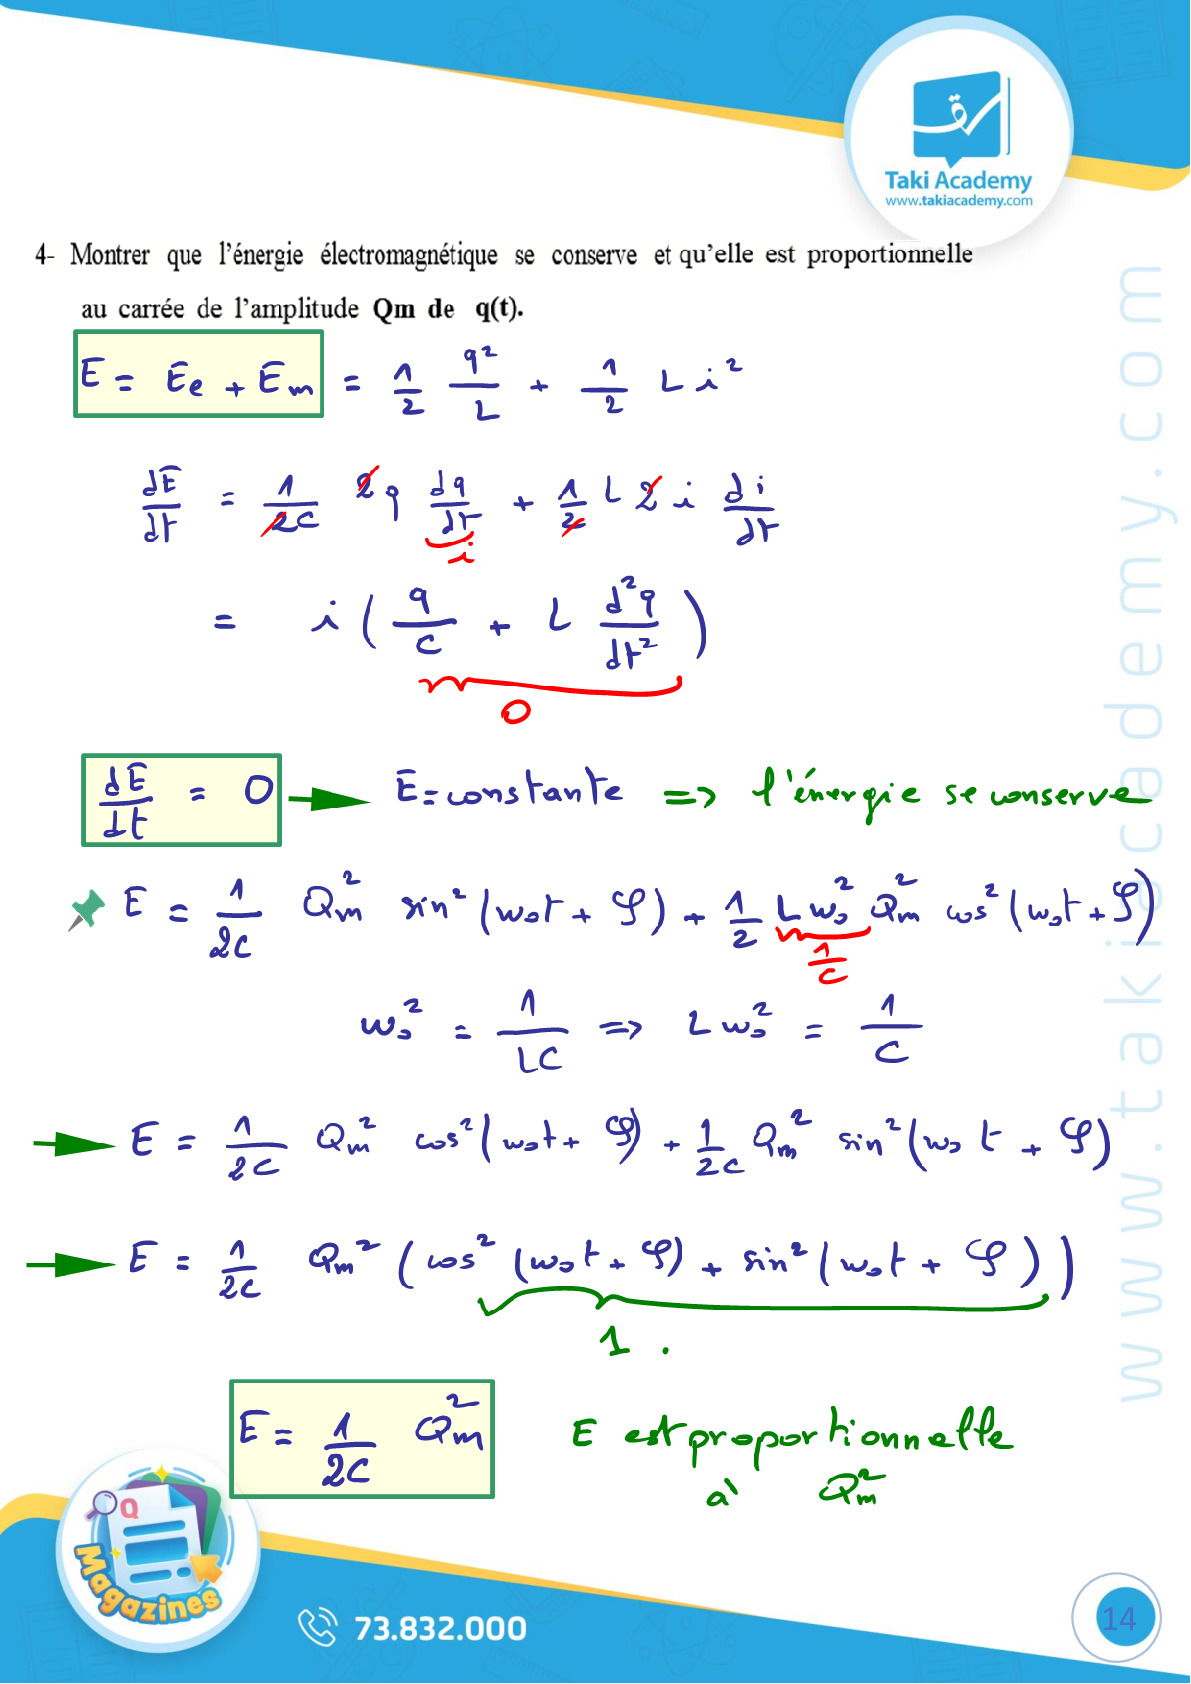 Taki Academy
www.takiacademy.com
4- Montrer que l'énergie électromagnétique se conserve et qu'elle est proportionnelle
au carrée de l'amplitude Qm de q(t).
E = Ee + Em = 1/2 q²/L + 1/2 L i²
dE/dt = 1/2C 2q dq/dt + 1/2 L 2 i di/dt
i
= i ( q/C + L d²q/dt² )
0
dE/dt = 0 → E = constante => l'énergie se conserve
E = 1/2C Qm² sin² (ω₀t + φ) + 1/2 L ω₀² Qm² cos² (ω₀t + φ)
1/C
ω₀² = 1/LC => L ω₀² = 1/C
→ E = 1/2C Qm² cos² (ω₀t + φ) + 1/2C Qm² sin² (ω₀t + φ)
→ E = 1/2C Qm² ( cos² (ω₀t + φ) + sin² (ω₀t + φ) )
1 .
E = 1/2C Qm² E est proportionnelle
à Qm²
www.takiacademy.com
Q
Magazines
73.832.000
14